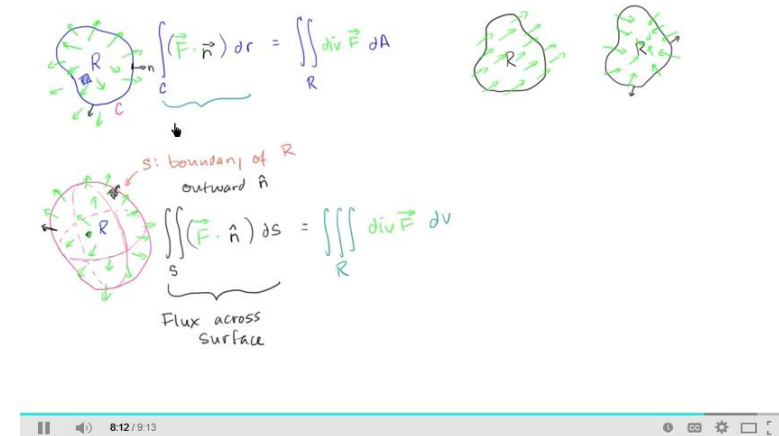 R
n
C
∫_C (F⃗ · n⃗) dr = ∬_R div F⃗ dA
R
R
S: boundary of R
outward n̂
R
∬_S (F⃗ · n̂) dS = ∭_R div F⃗ dv
Flux across
surface
8:12 / 9:13
CC